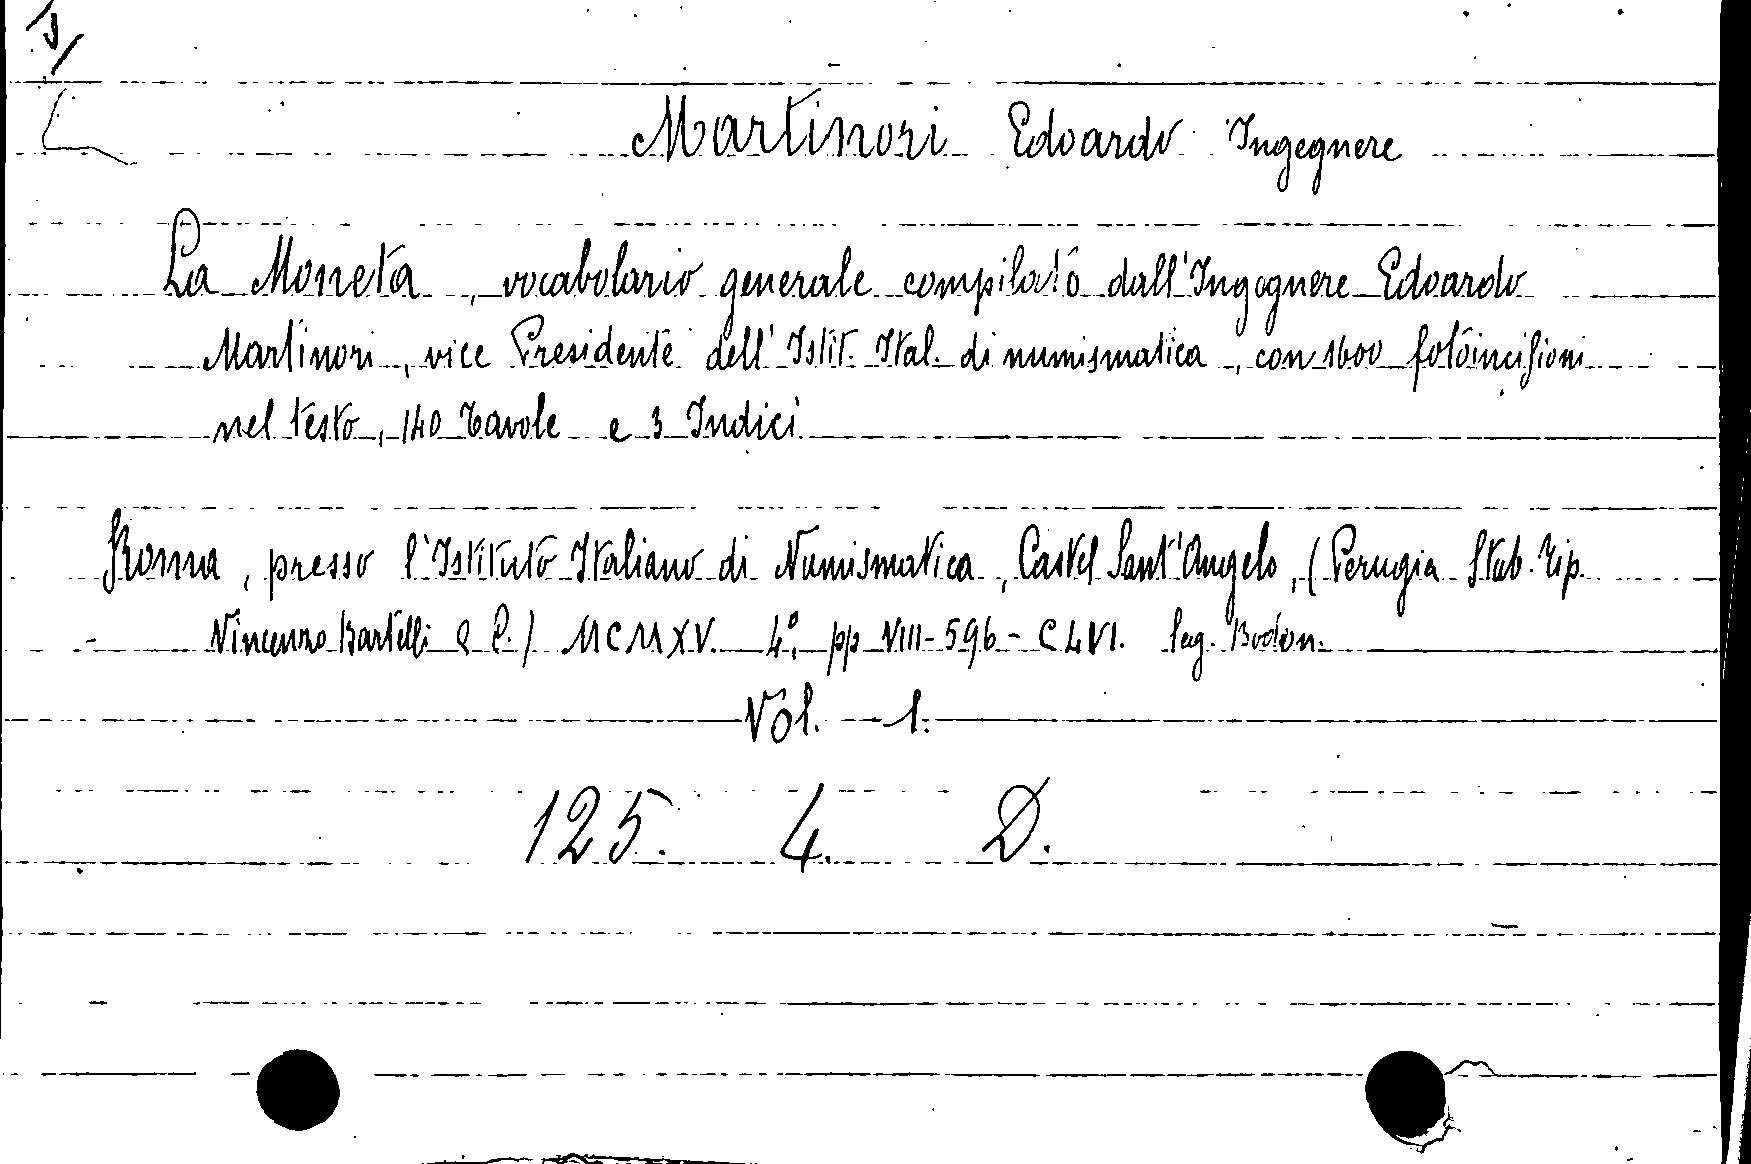 Martinori Edoardo Ingegnere
La Moneta, vocabolario generale compilato dall'Ingegnere Edoardo
Martinori, vice Presidente dell'Istit. Ital. di numismatica, con 1600 fotoincisioni
nel testo, 140 Tavole e 3 Indici
Roma, presso l'Istituto Italiano di Numismatica, Castel Sant'Angelo, (Perugia Stab. Tip.
Vincenzo Bartelli & C.) MCMXV. 4°, pp VIII-596-CLVI. leg. Bodon.
Vol. 1.
125. 4. D.